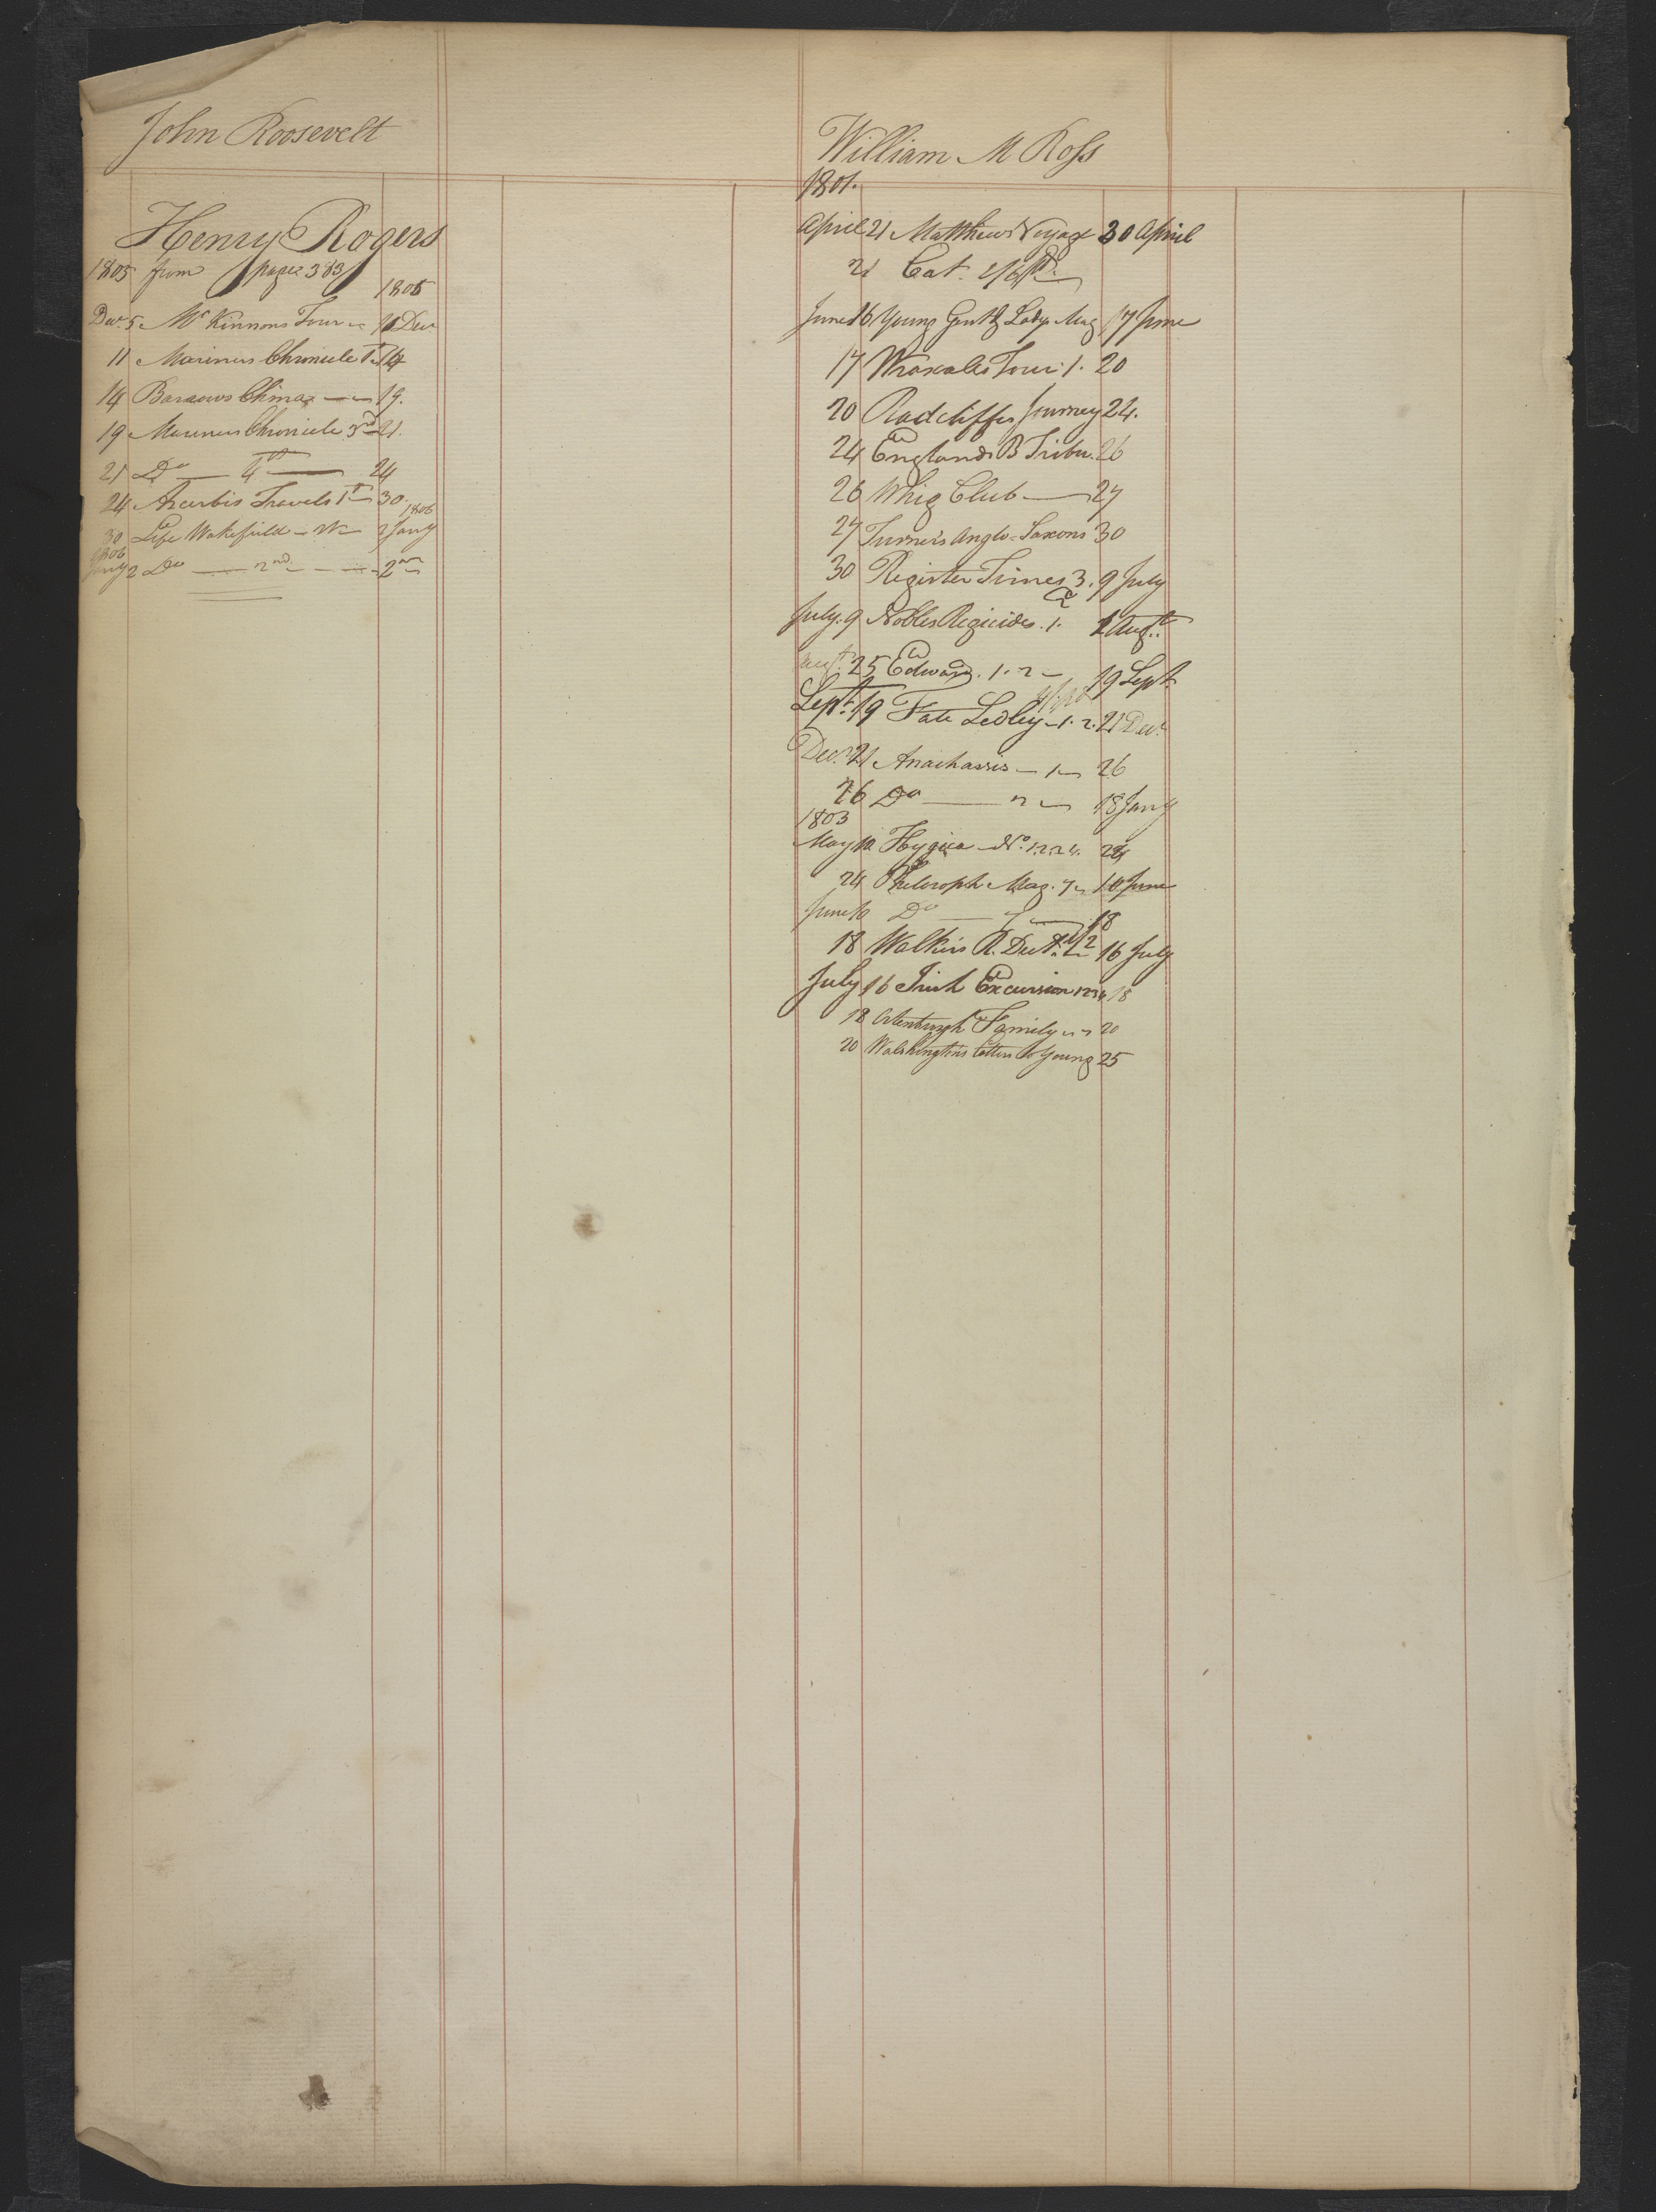 John Roosevelt
Henry Rogers
1805 from page 383
1805
Decr. 5 McKinnons Tour 11 Decr
11 Mariners Chronicle 1st 14
14 Barrows China 19.
19 Mariners Chronicle 3rd 21.
21 Do 4th 24
24 Acerbis Travels 1st 30.
1806
30 Life Wakefield 2 Jany
1806
Jany 2 Do 2nd
William M Ross
1801.
April 21 Matthews Voyage 30 April
21 Cat. pd.
June 16 Young Gent & Ladys Mag 17 June
17 Wraxalls Tour 1. 20
20 Radcliffes Journey 24.
24 Englands B Tribu. 26
26 Whig Club 27
27 Turners Anglo-Saxons 30
30 Register Times 3. 9 July
July. 9 Nobles Regicides. 1. 1 Augt.
Augt. 25 Edward. 1. 2 19 Sept
Sept. 19 Fate Sedley 1. 2. 21 Decr.
Decr. 21 Anacharsis 1 26
26 Do 2 18 Jany
1803
May 10 Hygiea No. 24
24 Philosoph Mag. 7 10 June
June 10 Do 18
18 Walkers R. Dect. 16 July
July 16 Irish Excursion 1234 18
18 Ortenburgh Family 20
20 Washingtons Letters to Young 25